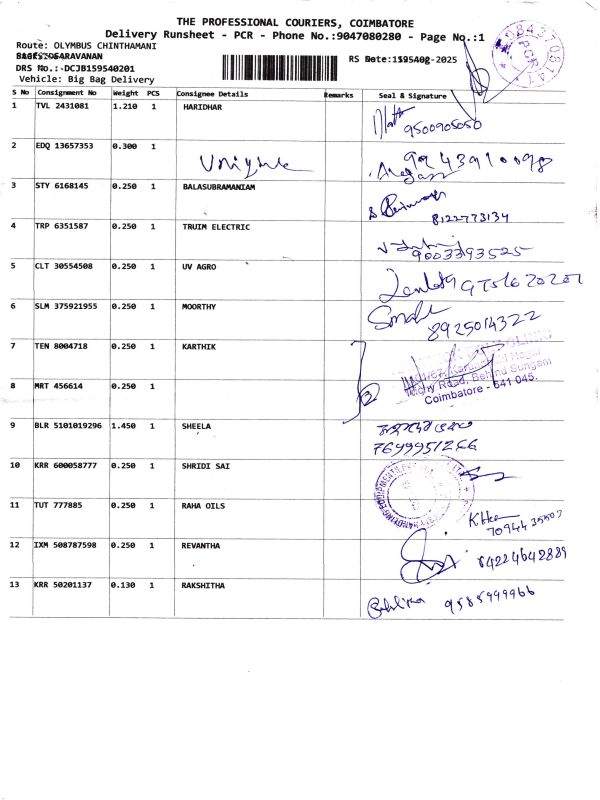 THE PROFESSIONAL COURIERS, COIMBATORE
Delivery Runsheet - PCR - Phone No.:9047080280 - Page No.:1
Route: OLYMBUS CHINTHAMANI
DRS No.:-DCJB159540201
Vehicle: Big Bag Delivery
S No Consignment No Weight PCS Consignee Details Remarks Seal & Signature
1 TVL 2431081 1.210 1 HARIDHAR
9500905050
2 EDQ 13657353 0.300 1
3 STY 6168145 0.250 1 BALASUBRAMANIAM
8122773134
4 TRP 6351587 0.250 1 TRUIM ELECTRIC
9003393525
5 CLT 30554508 0.250 1 UV AGRO
6 SLM 375921955 0.250 1 MOORTHY
8925014322
7 TEN 8004718 0.250 1 KARTHIK
8 MRT 456614 0.250 1
Trichy Road, Behind Sungam
Coimbatore - 641 045.
9 BLR 5101019296 1.450 1 SHEELA
7699951266
10 KRR 600058777 0.250 1 SHRIDI SAI
11 TUT 777885 0.250 1 RAHA OILS
7094435507
12 IXM 508787598 0.250 1 REVANTHA
84224642889
13 KRR 50201137 0.130 1 RAKSHITHA
9585999966